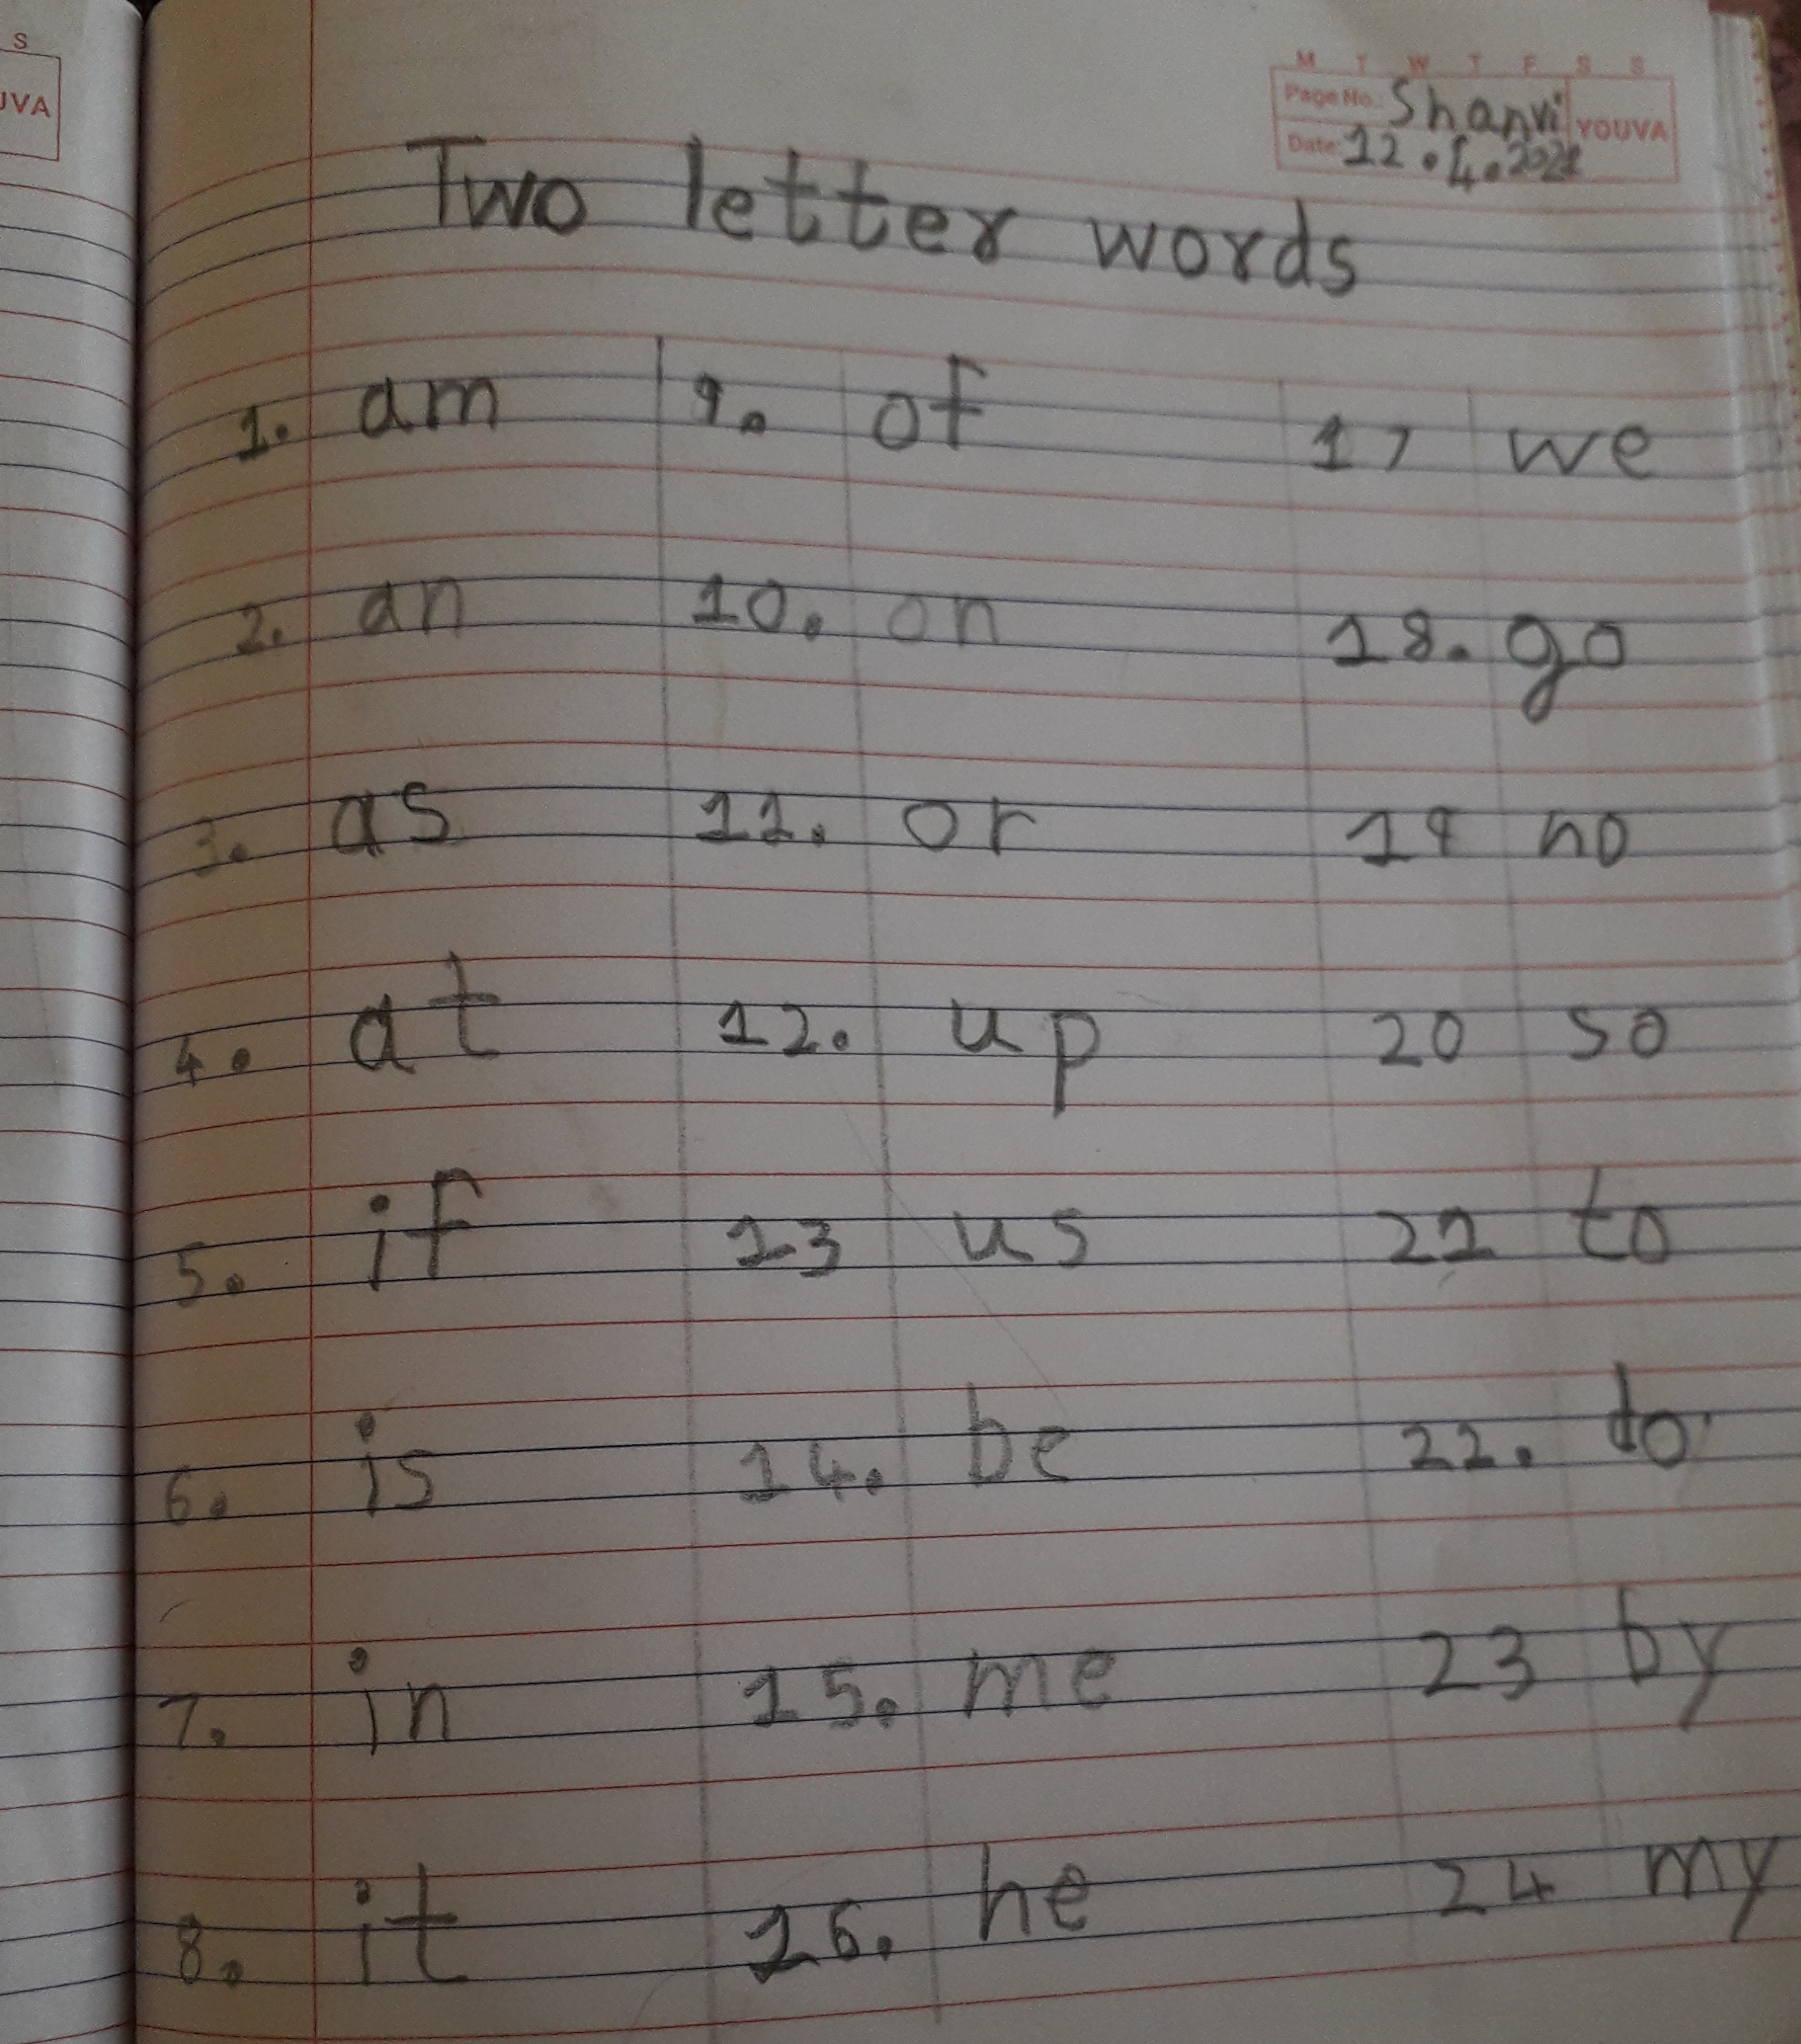 S
UVA
M T W T F S S
Page No.: Shanvi
YOUVA
Date: 12.4.2021
Two letter words
1. am 9. of 17 we
2. an 10. on 18. go
3. as 11. or 19 no
4. at 12. up 20 so
5. if 13 us 21 to
6. is 14. be 22. do
7. in 15. me 23 by
8. it 16. he 24 my